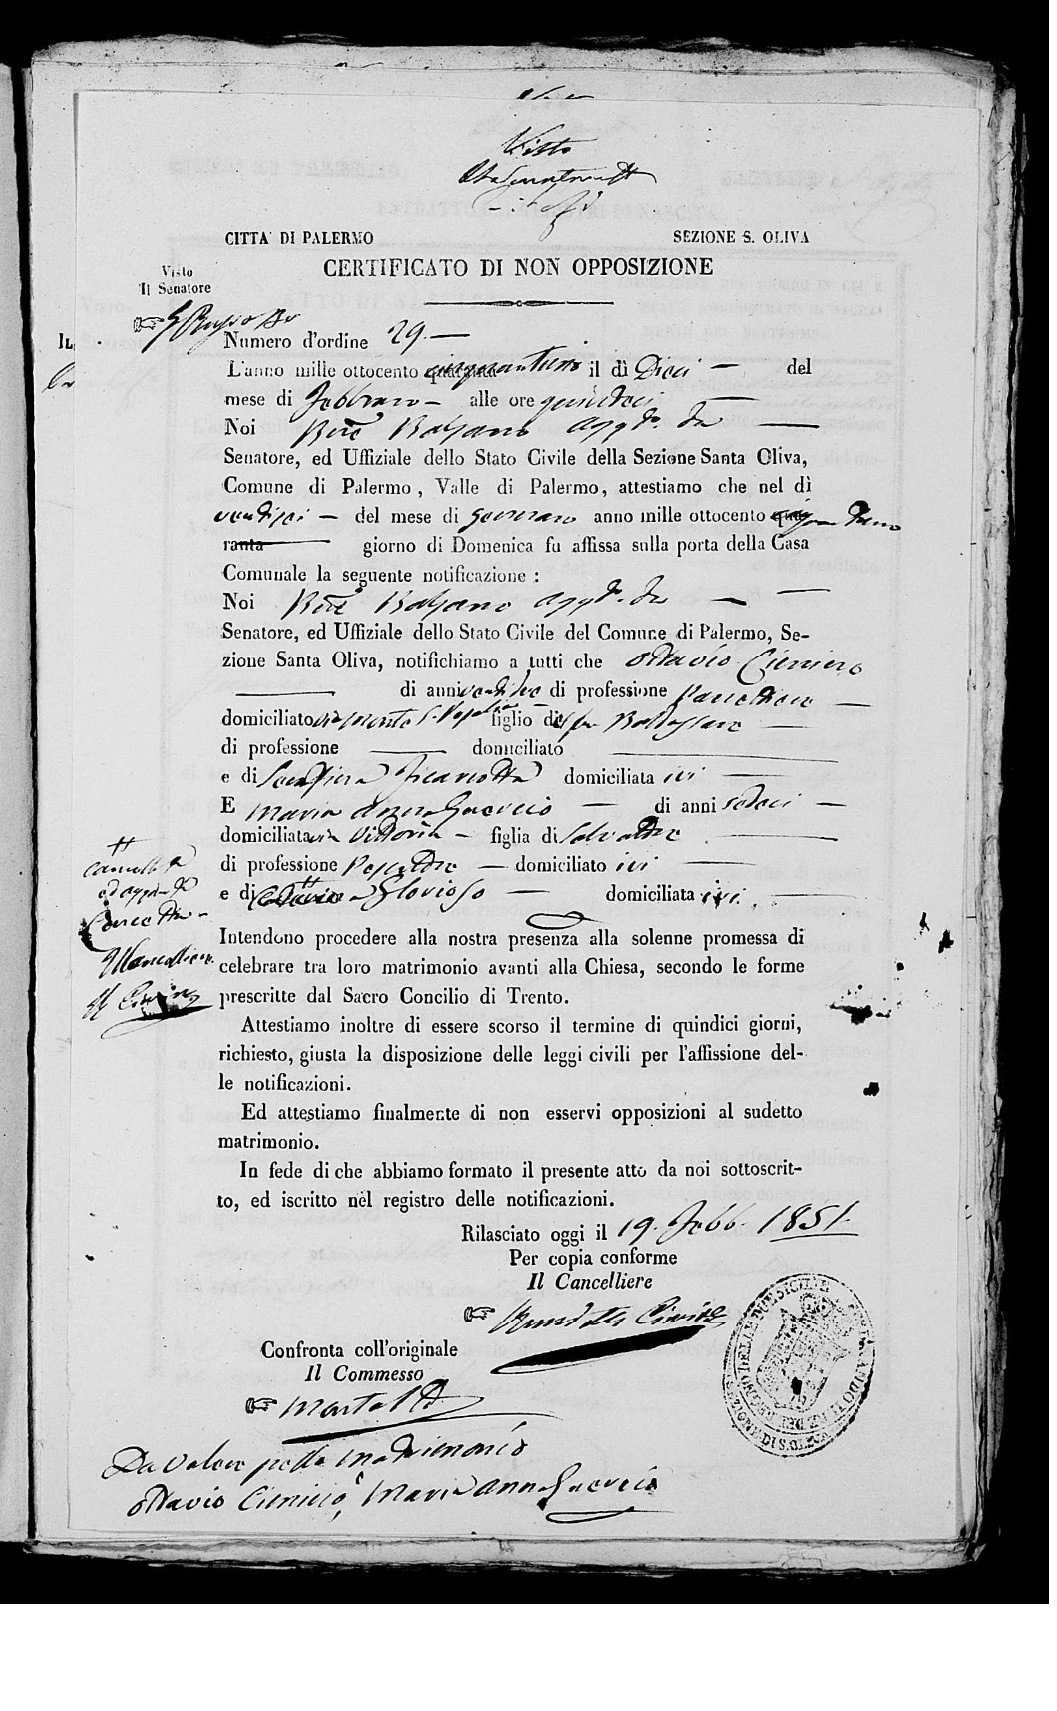 Visto
CITTA' DI PALERMO SEZIONE S. OLIVA
CERTIFICATO DI NON OPPOSIZIONE
Visto
Il Senatore
Numero d'ordine 29.
L'anno mille ottocento quaranta cinquantuno il dì Dieci del
mese di Febbraro alle ore quindeci
Noi Bne Balsano aggto. da
Senatore, ed Uffiziale dello Stato Civile della Sezione Santa Oliva,
Comune di Palermo, Valle di Palermo, attestiamo che nel dì
ventisei del mese di Gennaro anno mille ottocento qua
ranta giorno di Domenica fu affissa sulla porta della Casa
Comunale la seguente notificazione :
Noi Bne Balsano aggto. da
Senatore, ed Uffiziale dello Stato Civile del Comune di Palermo, Se-
zione Santa Oliva, notifichiamo a tutti che Ottavio Cieniero
di anni di professione Panettiere
domiciliato via Monte S. Rosalia figlio di Baldassare
di professione domiciliato
e di domiciliata ivi
E Maria Anna Guercio di anni sedeci
domiciliata via Vittoria figlia di Salvadore
di professione Pescatore domiciliato ivi
e di Glorioso domiciliata ivi.
cancellata
ed aggta
Concetta
Il Cancelliere
Intendono procedere alla nostra presenza alla solenne promessa di
celebrare tra loro matrimonio avanti alla Chiesa, secondo le forme
prescritte dal Sacro Concilio di Trento.
Attestiamo inoltre di essere scorso il termine di quindici giorni,
richiesto, giusta la disposizione delle leggi civili per l'affissione del-
le notificazioni.
Ed attestiamo finalmente di non esservi opposizioni al sudetto
matrimonio.
In fede di che abbiamo formato il presente atto da noi sottoscrit-
to, ed iscritto nel registro delle notificazioni.
Rilasciato oggi il 19. Febb. 1851.
Per copia conforme
Il Cancelliere
Benedetto
Confronta coll'originale
Il Commesso
Da valere pello matrimonio
Ottavio Cieniero, e Maria Anna Guercio